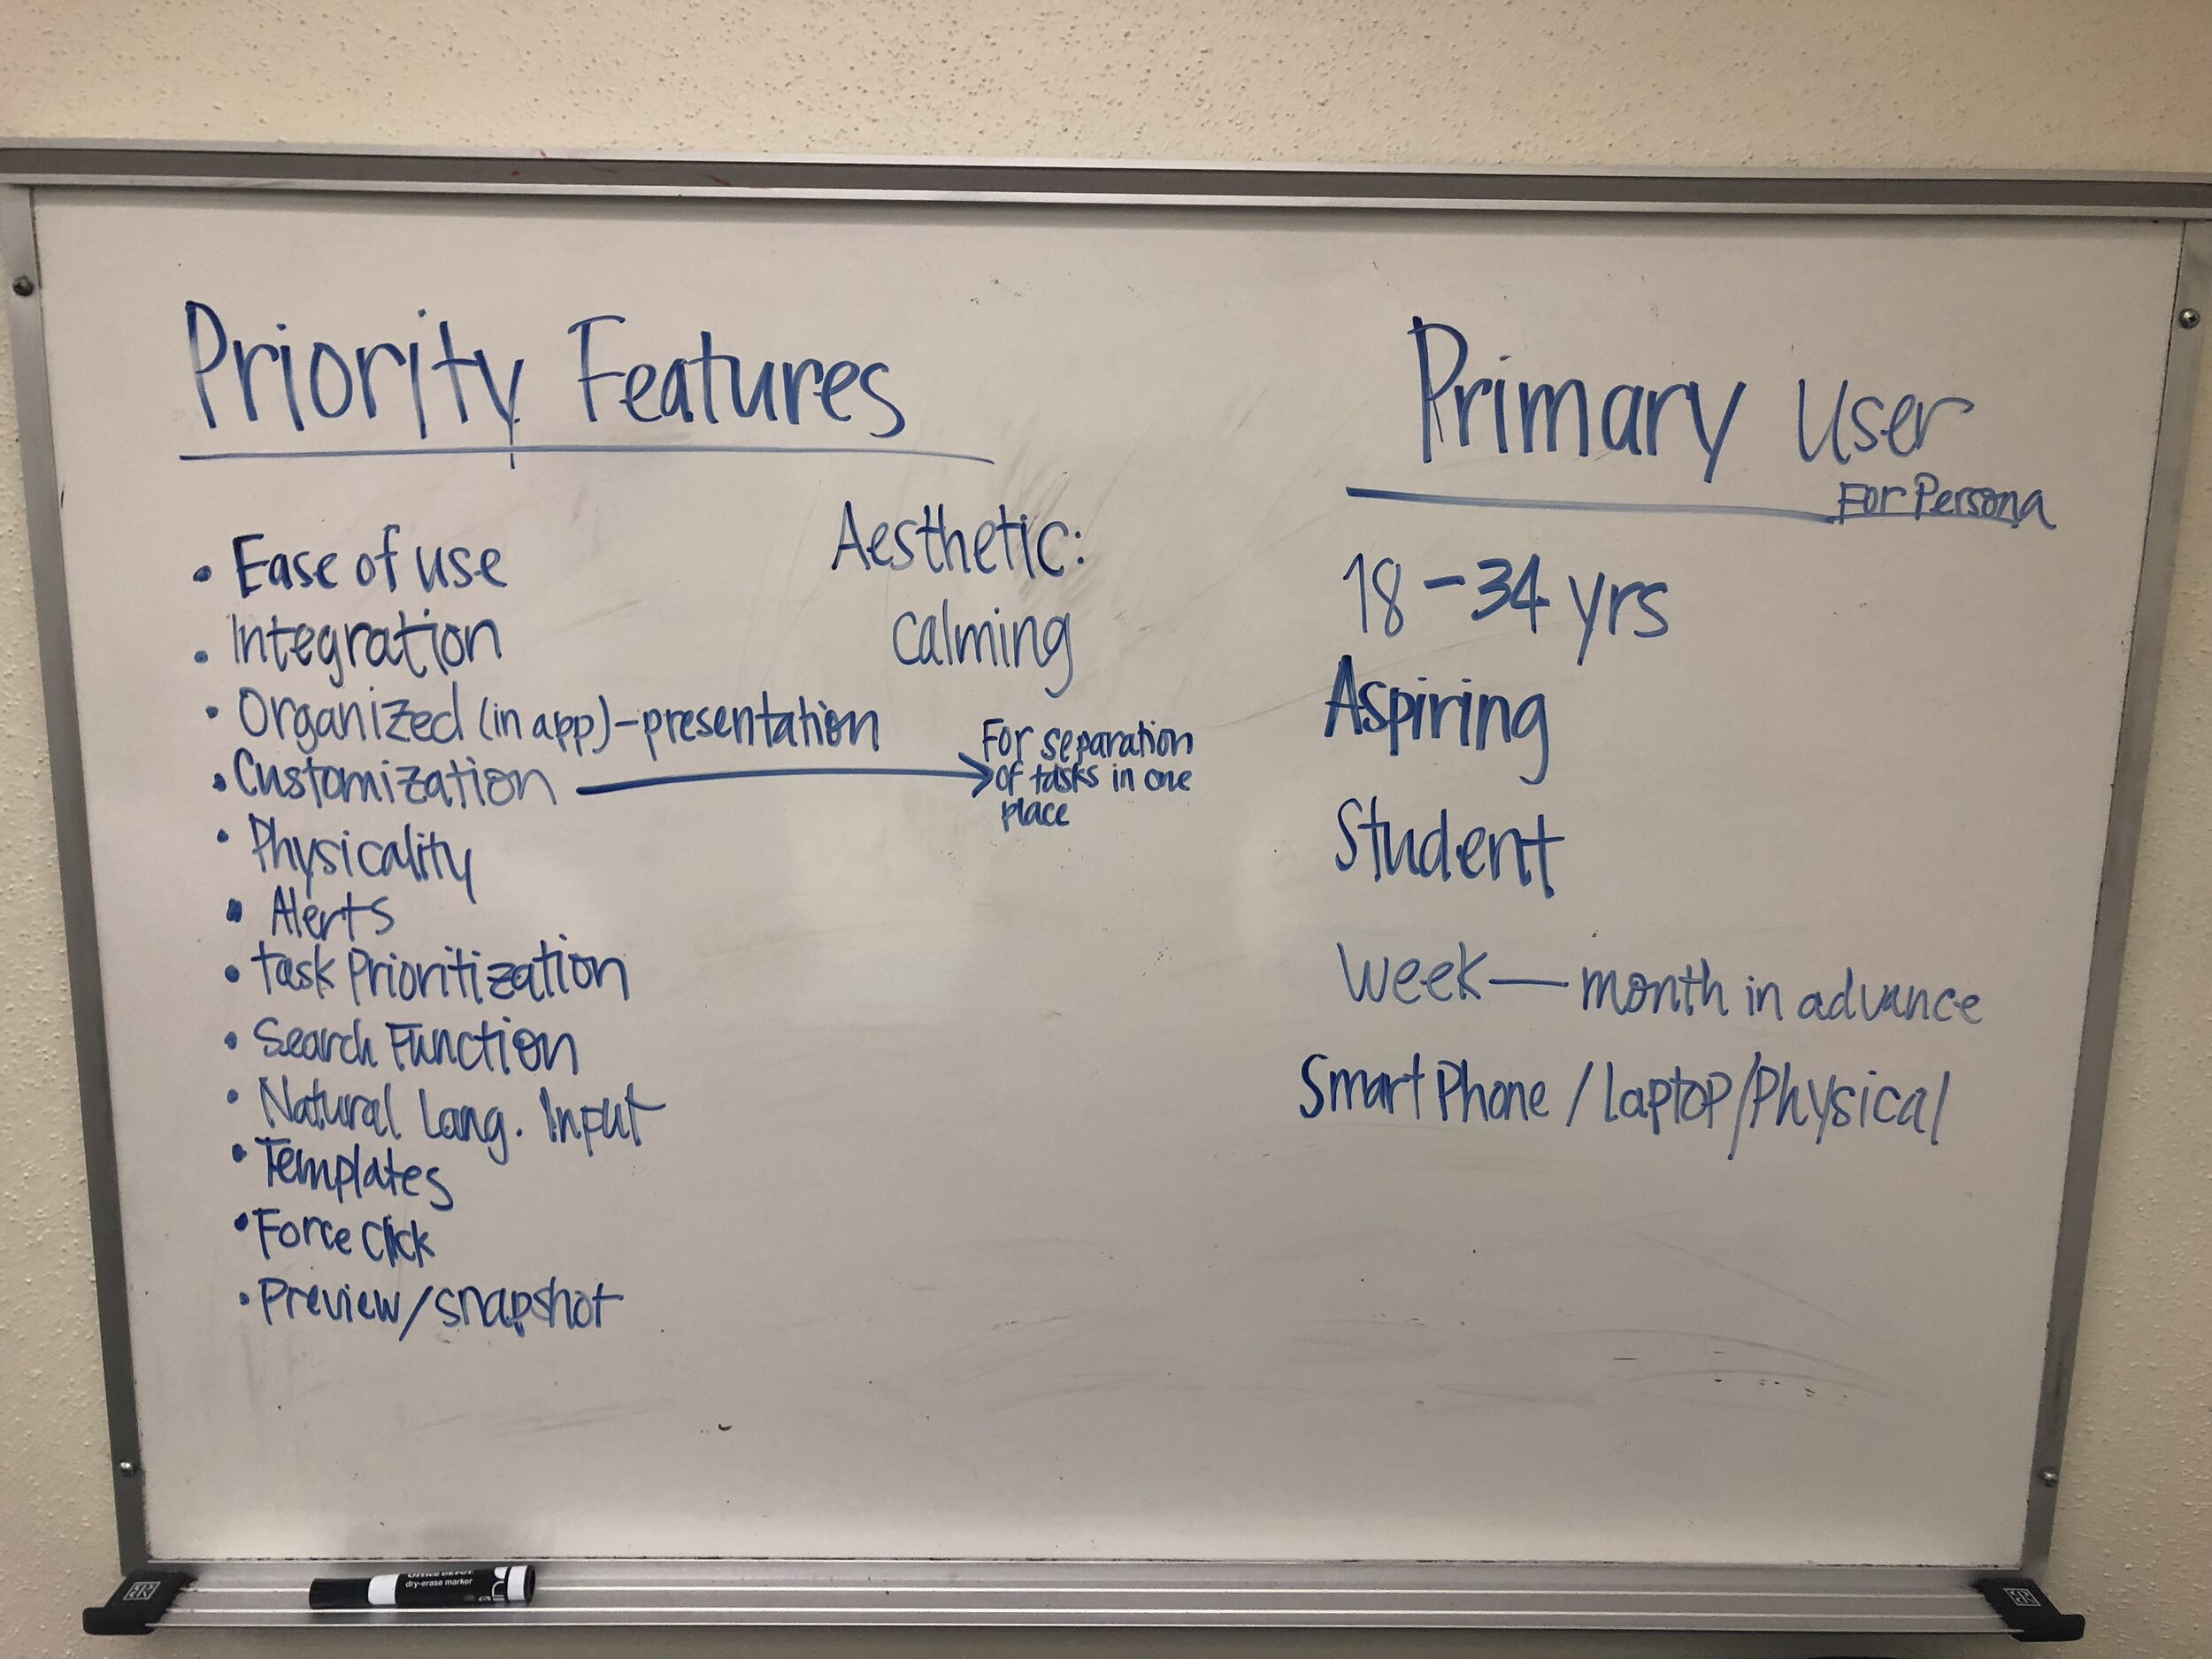 Priority Features
• Ease of use
• Integration
• Organized (in app) - presentation
• Customization →
For separation
of tasks in one
place
• Physicality
• Alerts
• Task Prioritization
• Search Function
• Natural Lang. Input
• Templates
• Force Click
• Preview/snapshot
Aesthetic:
Calming
Primary User
For Persona
18 - 34 yrs
Aspiring
Student
Week — month in advance
Smart Phone / laptop/Physical
dry-erase marker